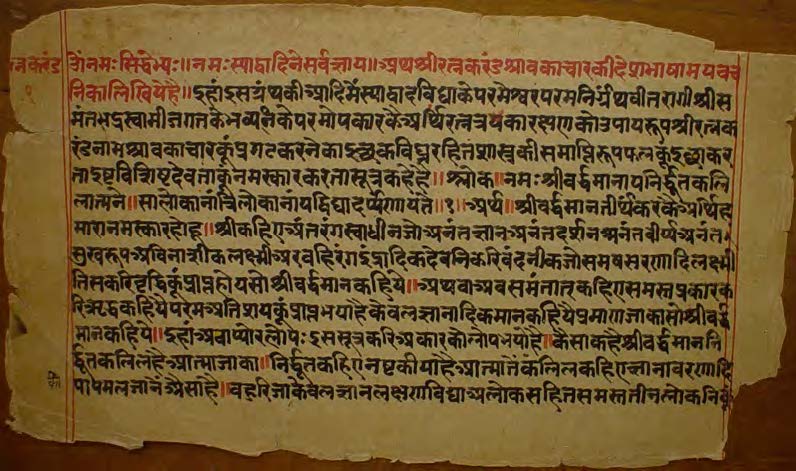 ॥ॐनमःसिद्धेभ्यः॥नमःस्याद्वादिनेसर्वज्ञाय॥अथश्रीरत्नकरंडश्रावकाचारकीदेशभाषामयवच
निकालिखियेहै॥इहांइसग्रंथकीआदिमैंस्याद्वादविद्याकेपरमेश्वरपरमनिर्ग्रंथवीतरागीश्रीस
मंतभद्रस्वामीजगतकेभव्यनिकेपरमोपकारकैअर्थिरत्नत्रयकारक्षणकोउपायरूपश्रीरत्नक
रंडनामश्रावकाचारकूंप्रगटकरनेकाइच्छकविघ्नरहितशास्त्रकीसमाप्तिरूपफलकूंइच्छाकर
ताइष्टविशिष्टदेवताकूंनमस्कारकरतासूत्रकहैहै॥श्लोक॥नमःश्रीवर्द्धमानायनिर्द्धूतकलि
लात्मने॥सालोकानांत्रिलोकानांयद्विद्यादर्प्पणायते॥१॥अर्थ॥श्रीवर्द्धमानतीर्थंकरकैअर्थिह
मारानमस्कारहोहू॥श्रीकहिएअंतरंगस्वाधीनजोअनंतज्ञानअनंतदर्शनअनंतवीर्य्यअनंत
सुखरूपअविनाशीकलक्ष्मीअरबहिरंगइंद्रादिकदेवनिकरिवंदनीकजोसमवसरणादिलक्ष्मी
तिसकरिवृद्धिकूंप्राप्तहोयसोश्रीवर्द्धमानकहिये॥अथवाअवसमंतात्कहिएसमस्तप्रकारक
रिऋद्धकहियेपरमअतिशयकूंप्राप्तभयोहैकेवलज्ञानादिकमानकहियेप्रमाणजाकासोश्रीवर्द्ध
मानकहिये॥इहांअवाप्योरलोपःइससूत्रकरिअकारकोलोपभयोहै॥कैसाकहैश्रीवर्द्धमाननि
र्द्धूतकलिलहैआत्माजाका॥निर्द्धूतकहिएनष्टकीयोहैआत्मातैंकलिलकहिएज्ञानावरणादि
पापमलजानेंऐसाहै॥बहुरिजाकेवलज्ञानलक्षणविद्याअलोकसहितसमस्ततीनलोकनि